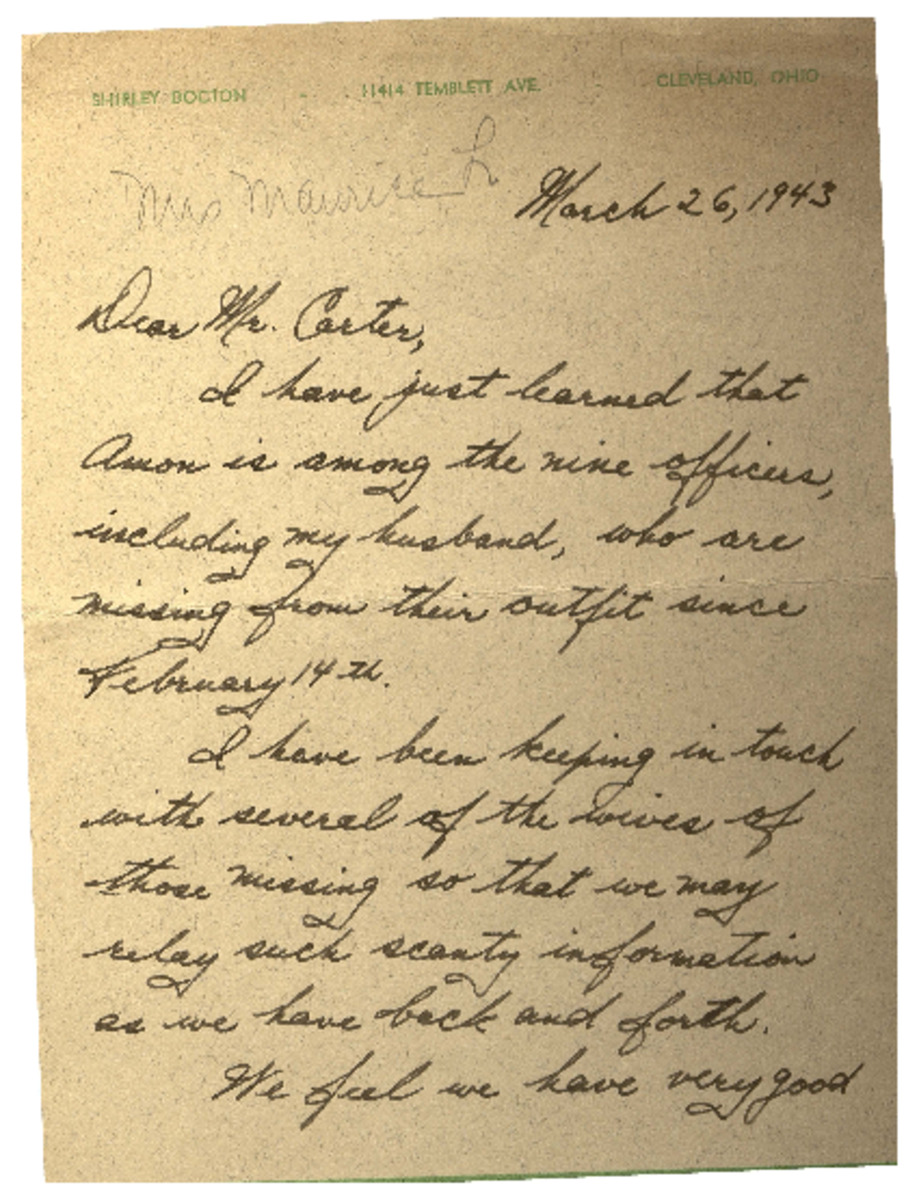 SHIRLEY DOCTON 11414 TEMBLETT AVE. CLEVELAND, OHIO
Mrs Maurice L
March 26, 1943
Dear Mr. Carter,
I have just learned that
Amon is among the nine officers,
including my husband, who are
missing from their outfit since
February 14th.
I have been keeping in touch
with several of the wives of
those missing so that we may
relay such scanty information
as we have back and forth.
We feel we have very good